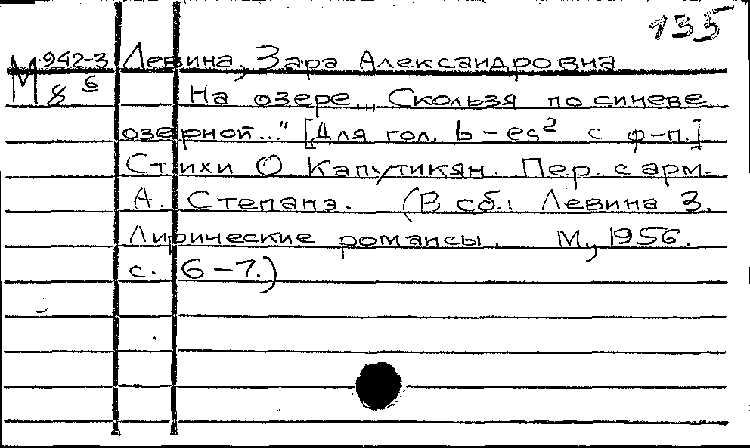 135
М 942-3 Левина, Зара Александровна
8 6 На озере. „Скользя по синеве
озерной..." [Для гол. b – es² с ф-п.]
Стихи О Капутикян. Пер. с арм.
А. Степанэ. (В сб.: Левина З.
Лирические романсы. М., 1956.
с. 6–7.)